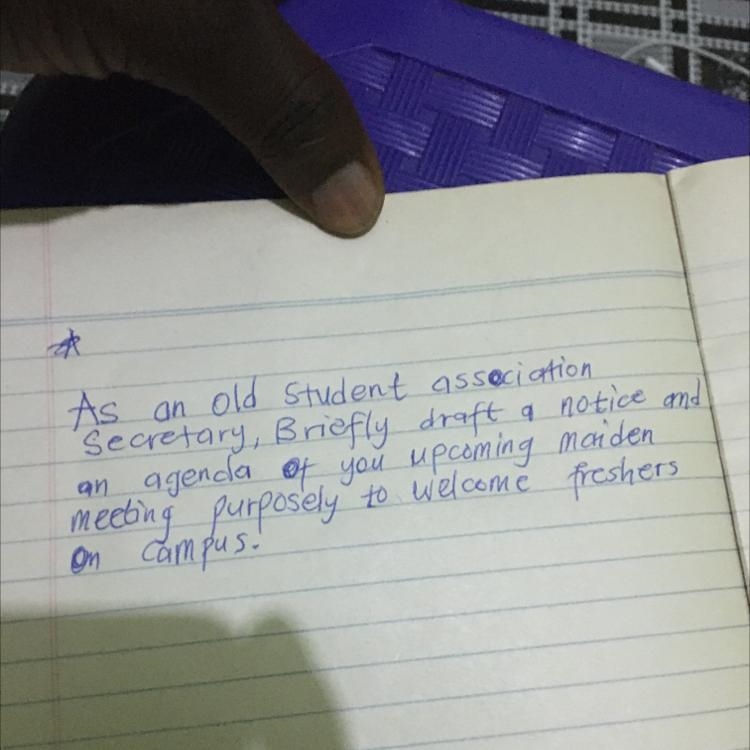 As an old student association
Secretary, Briefly draft a notice and
an agenda of you upcoming maiden
meeting purposely to welcome freshers
on campus.